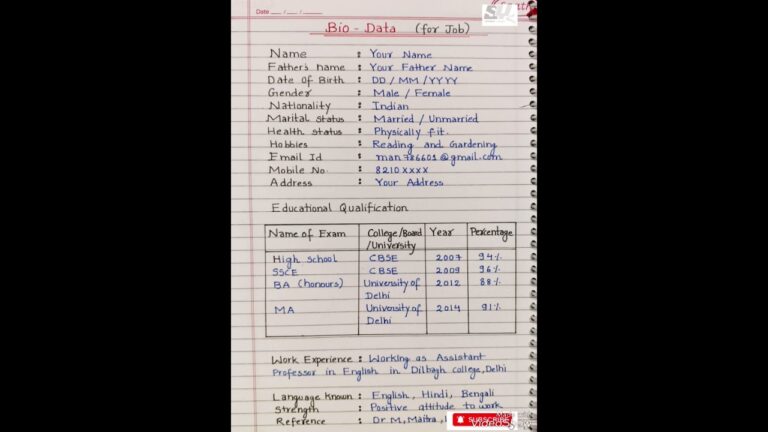 Date __/__/__
Bio - Data (for Job)
Name : Your Name
Father's name : Your Father Name
Date Of Birth : DD / MM / YYYY
Gender : Male / Female
Nationality : Indian
Marital Status : Married / Unmarried
Health status : Physically fit.
Hobbies : Reading and Gardening
Email Id : man786601@gmail.com
Mobile No. : 8210XXXX
Address : Your Address
Educational Qualification
Name of Exam College/Board/University Year Percentage
High School CBSE 2007 94%
SSCE CBSE 2009 96%
BA (honours) University of Delhi 2012 88%
MA University of Delhi 2014 91%
Work Experience : Working as Assistant
Professor in English in Dilbagh college, Delhi
Language Known : English, Hindi, Bengali
Strength : Positive attitude to work
Reference : Dr M, Maitra,
SUBSCRIBE